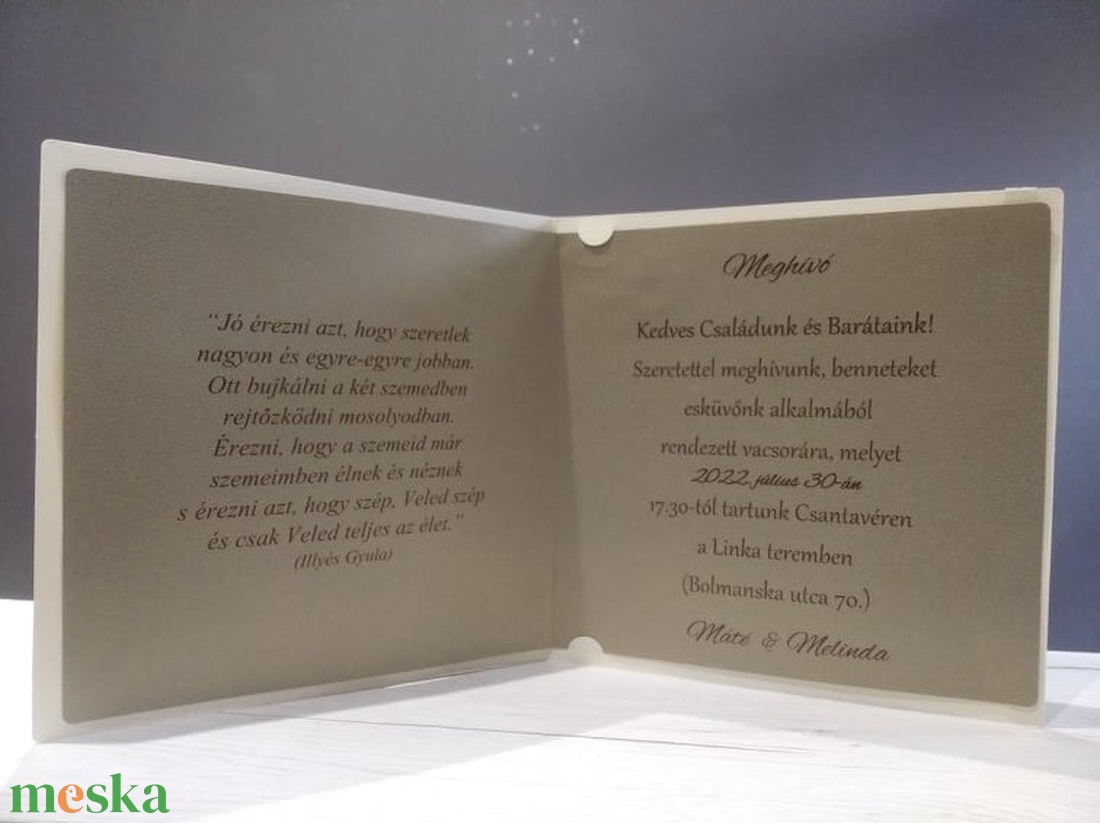 “Jó érezni azt, hogy szeretlek
nagyon és egyre-egyre jobban.
Ott bujkálni a két szemedben
rejtőzködni mosolyodban.
Érezni, hogy a szemeid már
szemeimben élnek és néznek
s érezni azt, hogy szép, Veled szép
és csak Veled teljes az élet.”
(Illyés Gyula)
Meghívó
Kedves Családunk és Barátaink!
Szeretettel meghívunk, benneteket
esküvőnk alkalmából
rendezett vacsorára, melyet
2022. július 30-án
17.30-tól tartunk Csantavéren
a Linka teremben
(Bolmanska utca 70.)
Máté & Melinda
meska